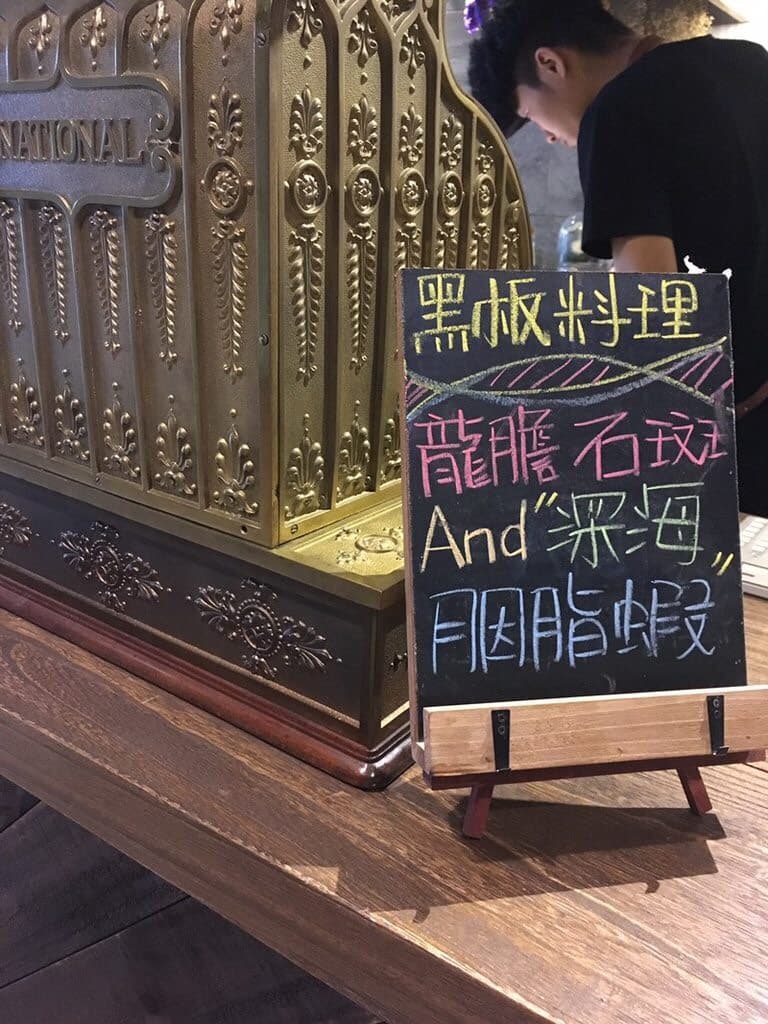 NATIONAL
黑板料理
龍膽石斑
And"深海„
胭脂蝦